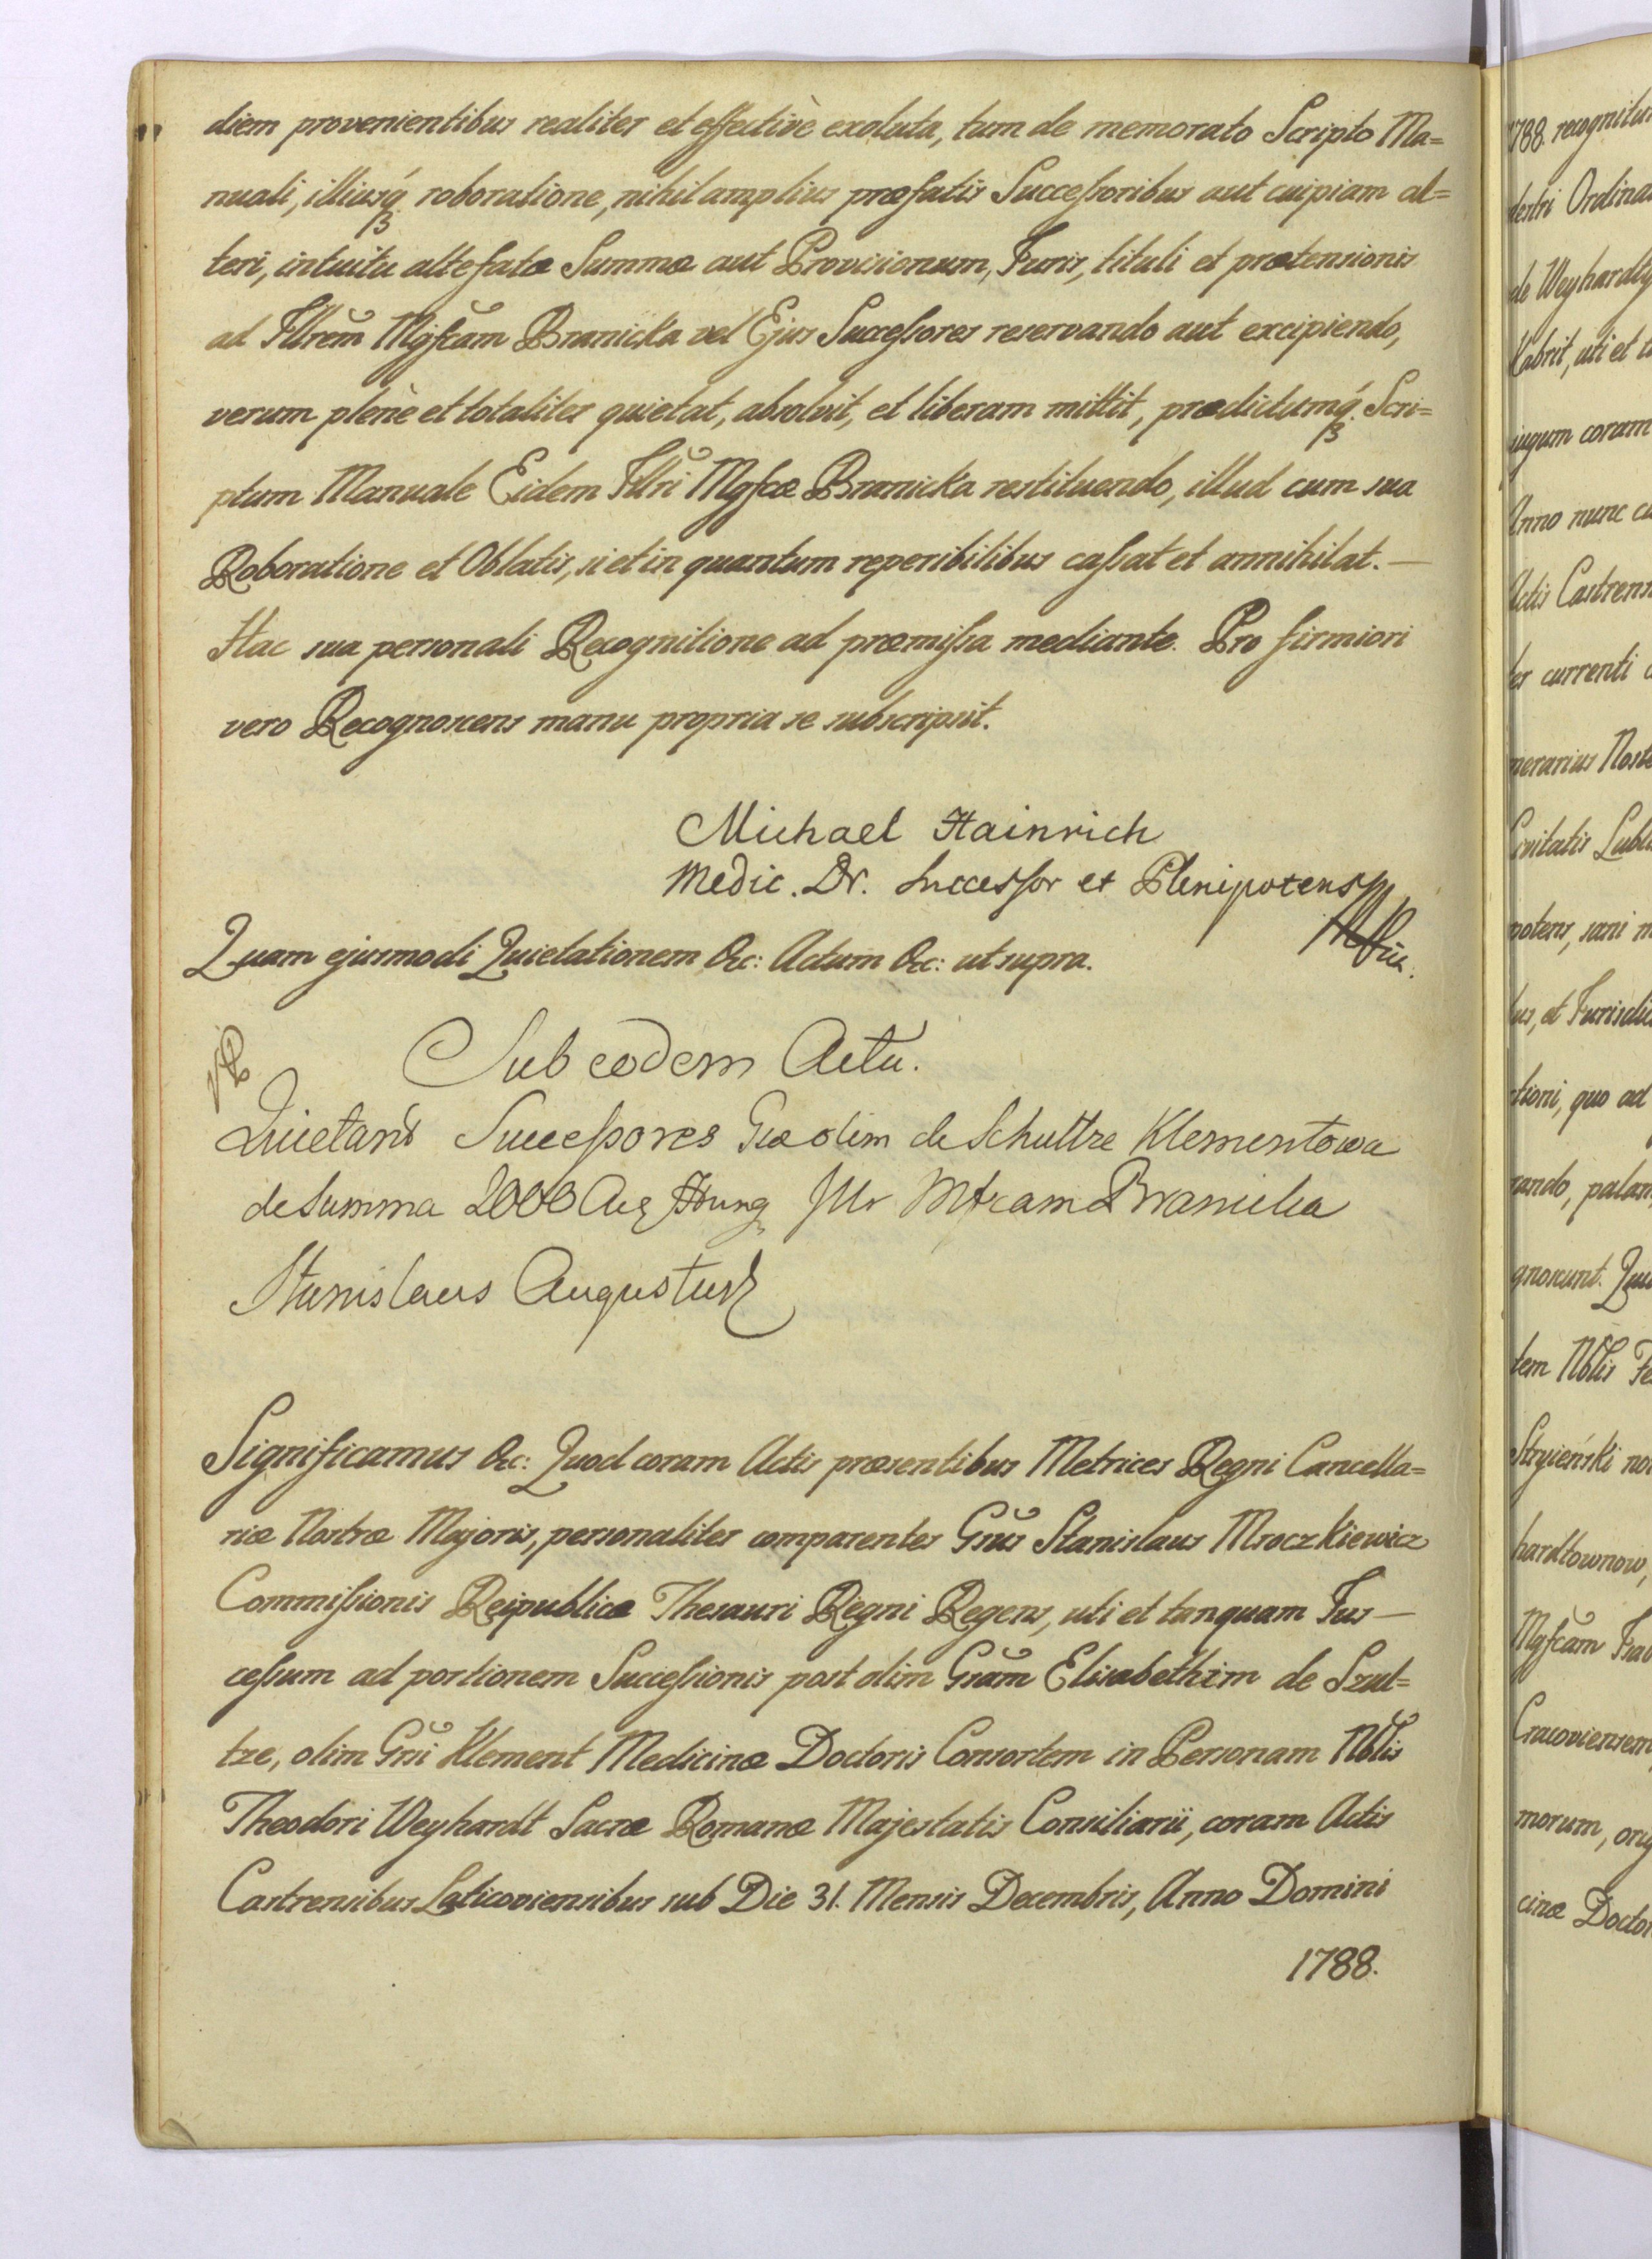 diem provenientibus realiter et effectivè exoluta, tum de memorato Scripto Ma=
nuali, illiusq́ roboratione, nihil amplius præfatis Succeſsoribus aut cuipiam al=
teri, intuitu altefatæ Summæ aut Provisionum, Juris, tituli et prætensionis
ad Jllrem̃ Mgfcam Branicka vel Ejus Succeſsores reservando aut excipiendo,
verum plenè et totaliter quietat, absolvit, et liberam mittit, prædictumq́. Scri=
ptum Manuale Eidem Jllri Mgfcæ Branicka restituendo, illud cum sua
Roboratione et Oblatis, si et in quantum reperibilibus caſsat et annihilat. —
Hac sua personali Recognitione ad præmiſsa mediante. Pro firmiori
vero Recognoscens manu propria se subscripsit.
Michael Hainrich
Medic. Dr. Succeſsor et Plenipotens
Quam ejusmodi Quietationem &c: Actum &c: ut supra.
Sub eodem Actu.
Quietant Succeſsores Gæ olim de Schultze Klementowa
de Summa 2000 Aur Hung Jllr Mfcam Branicka
Stanislaus Augustus
Significamus &c: Quod coram Actis præsentibus Metrices Regni Cancella=
riæ Nostræ Majoris, personaliter comparentes Gñus Stanislaus Mroczkiewicz
Commiſsionis Reipublicæ Thesauri Regni Regens, uti et tanquam Jus —
ceſsum ad portionem Succeſsionis post olim Gñam Elisabetham de Szul=
tze, olim Gñi Klement Medicinæ Doctoris Consortem in Personam Nblis
Theodori Weyhardt Sacræ Romanæ Majestatis Consiliarii, coram Actis
Castrensibus Laticoviensibus sub Die 31. Mensis Decembris, Anno Domini
1788.
1788. recognitu
destri Ordina
de Weyhardt
Kabrit, uti et
iugum coram
Anno nunc cu
Actis Castrens
ter currenti
nerarius Nost
Civitatis Lubl
potens, sani m
bus, et Jurisdic
tioni, quo ad
rando, palam
gnorunt. Qu
tem Nblis Fe
Stryieński no
hardtownow,
Mgfcam
Cracoviensem
morum, orig
cinæ Doctor